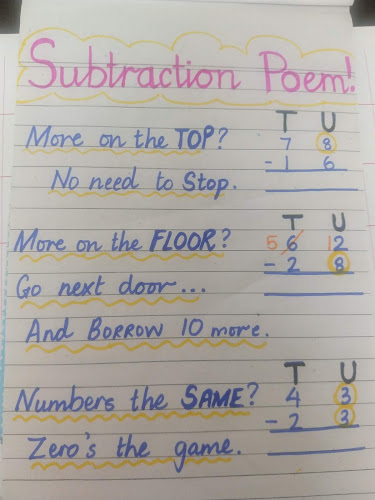 Subtraction Poem!
T U
More on the TOP? 7 8
- 1 6
No need to Stop.
T U
More on the FLOOR? 5 6 12
- 2 8
Go next door...
And BORROW 10 more.
T U
Numbers the SAME? 4 3
- 2 3
Zero's the game.